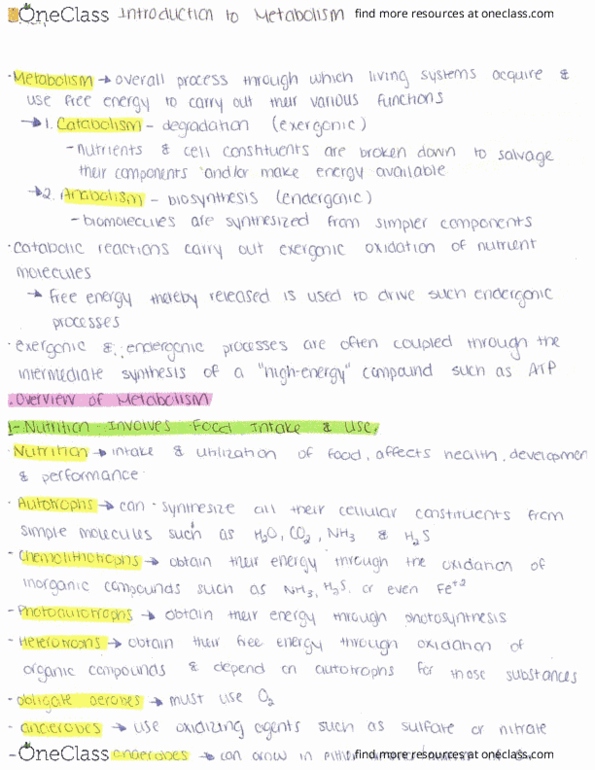 OneClass Introduction to Metabolism find more resources at oneclass.com
· Metabolism → overall process through which living systems acquire &
use free energy to carry out their various functions
→ 1. Catabolism - degradation (exergonic)
- nutrients & cell constituents are broken down to salvage
their components and/or make energy available
→ 2. Anabolism - biosynthesis (endergonic)
- biomolecules are synthesized from simpler components
· catabolic reactions carry out exergonic oxidation of nutrient
molecules
→ free energy thereby released is used to drive such endergonic
processes
· exergonic & endergonic processes are often coupled through the
intermediate synthesis of a "high-energy" compound such as ATP
· Overview of Metabolism
1- Nutrition Involves Food Intake & Use.
· Nutrition → intake & utilization of food, affects health, developmen
& performance
· Autotrophs → can synthesize all their cellular constituents from
simple molecules such as H₂O, CO₂, NH₃ & H₂S
- Chemolithotrophs → obtain their energy through the oxidation of
inorganic compounds such as NH₃, H₂S, or even Fe⁺²
- Photoautotrophs → obtain their energy through photosynthesis
- Heterotrophs → obtain their free energy through oxidation of
organic compounds & depend on autotrophs for those substances
- obligate aerobes → must use O₂
- anaerobes → use oxidizing agents such as sulfate or nitrate
- OneClass anaerobes → can grow in either find more resources at oneclass.com